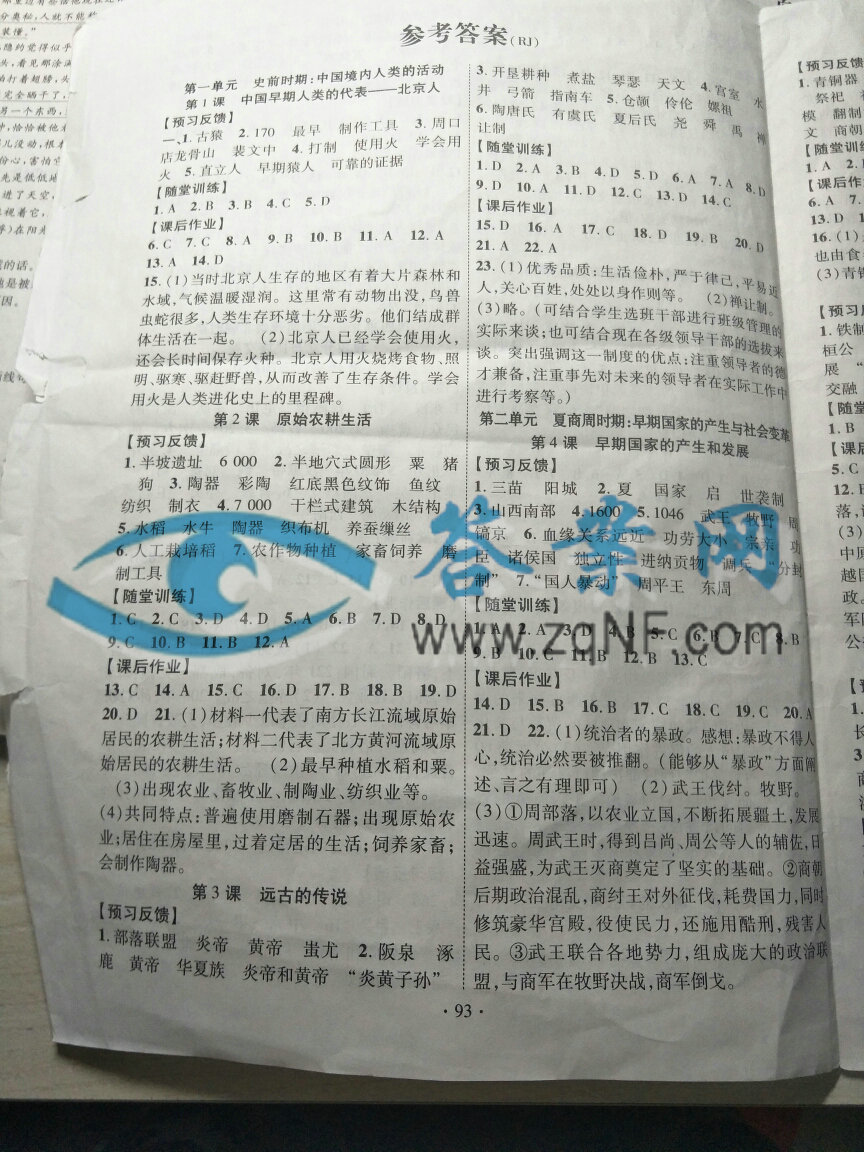 参考答案(RJ)
第一单元 史前时期:中国境内人类的活动
第1课 中国早期人类的代表——北京人
【预习反馈】
一、1.古猿 2.170 最早 制作工具 3.周口
店龙骨山 裴文中 4.打制 使用火 学会用
火 5.直立人 早期猿人 可靠的证据
【随堂训练】
1.A 2.B 3.B 4.C 5.D
【课后作业】
6.C 7.C 8.A 9.B 10.B 11.A 12.A
13.A 14.D
15.(1)当时北京人生存的地区有着大片森林和
水域,气候温暖湿润。这里常有动物出没,鸟兽
虫蛇很多,人类生存环境十分恶劣。他们结成群
体生活在一起。 (2)北京人已经学会使用火,
还会长时间保存火种。北京人用火烧烤食物、照
明、驱寒、驱赶野兽,从而改善了生存条件。学会
用火是人类进化史上的里程碑。
第2课 原始农耕生活
【预习反馈】
1.半坡遗址 6 000 2.半地穴式圆形 粟 猪
狗 3.陶器 彩陶 红底黑色纹饰 鱼纹
纺织 制衣 4.7 000 干栏式建筑 木结构
5.水稻 水牛 陶器 织布机 养蚕缫丝
6.人工栽培稻 7.农作物种植 家畜饲养 磨
制工具
【随堂训练】
1.C 2.C 3.D 4.D 5.A 6.B 7.D 8.D
9.C 10.B 11.B 12.A
【课后作业】
13.C 14.A 15.C 16.D 17.B 18.B 19.D
20.D 21.(1)材料一代表了南方长江流域原始
居民的农耕生活;材料二代表了北方黄河流域原
始居民的农耕生活。 (2)最早种植水稻和粟。
(3)出现农业、畜牧业、制陶业、纺织业等。
(4)共同特点:普遍使用磨制石器;出现原始农
业;居住在房屋里,过着定居的生活;饲养家畜;
会制作陶器。
第3课 远古的传说
【预习反馈】
1.部落联盟 炎帝 黄帝 蚩尤 2.阪泉 涿
鹿 黄帝 华夏族 炎帝和黄帝 “炎黄子孙”
3.开垦耕种 煮盐 琴瑟 天文 4.宫室 水
井 弓箭 指南车 5.仓颉 伶伦 嫘祖
6.陶唐氏 有虞氏 夏后氏 尧 舜 禹 禅
让制
【随堂训练】
1.D 2.A 3.B 4.D 5.D 6.A 7.A 8.D
9.D 10.A 11.D 12.C 13.D 14.C
【课后作业】
15.D 16.A 17.C 18.D 19.B 20.D
21.A 22.A
23.(1)优秀品质:生活俭朴,严于律己,平易近
人,关心百姓,处处以身作则等。 (2)禅让制。
(3)略。(可结合学生选班干部进行班级管理的
实际来谈;也可结合现在各级领导干部的选拔来
谈。突出强调这一制度的优点:注重领导者的德
才兼备,注重事先对未来的领导者在实际工作中
进行考察等。)
第二单元 夏商周时期:早期国家的产生与社会变革
第4课 早期国家的产生和发展
【预习反馈】
1.三苗 阳城 2.夏 国家 启 世袭制
3.山西南部 4.1600 5.1046 武王 牧野 周
镐京 6.血缘关系远近 功劳大小 宗亲 功
臣 诸侯国 独立性 进纳贡物 调兵 “分封
制” 7.“国人暴动” 周平王 东周
【随堂训练】
1.A 2.A 3.D 4.B 5.C 6.B 7.C 8.B
9.B 10.C 11.B 12.B 13.C
【课后作业】
14.D 15.B 16.B 17.C 18.C 19.C 20.A
21.D 22.(1)统治者的暴政。感想:暴政不得人
心,统治必然要被推翻。(能够从“暴政”方面阐
述、言之有理即可) (2)武王伐纣。牧野。
(3)①周部落,以农业立国,不断拓展疆土,发展
迅速。周武王时,得到吕尚、周公等人的辅佐,日
益强盛,为武王灭商奠定了坚实的基础。②商朝
后期政治混乱,商纣王对外征伐,耗费国力,同时
修筑豪华宫殿,役使民力,还施用酷刑,残害人
民。③武王联合各地势力,组成庞大的政治联
盟,与商军在牧野决战,商军倒戈。
· 93 ·
答案网
www.zqNF.com
【预习反馈】
1.青铜器
祭祀
模 翻制
文 商朝
【随堂训练】
1.A 2.
【课后作业】
6.A 7.
13.D 1
16.(1)
也由食
(3)青铜
【预习反
1.铁制
桓公
展 “
交融
【随堂
1.B
【课后
5.C